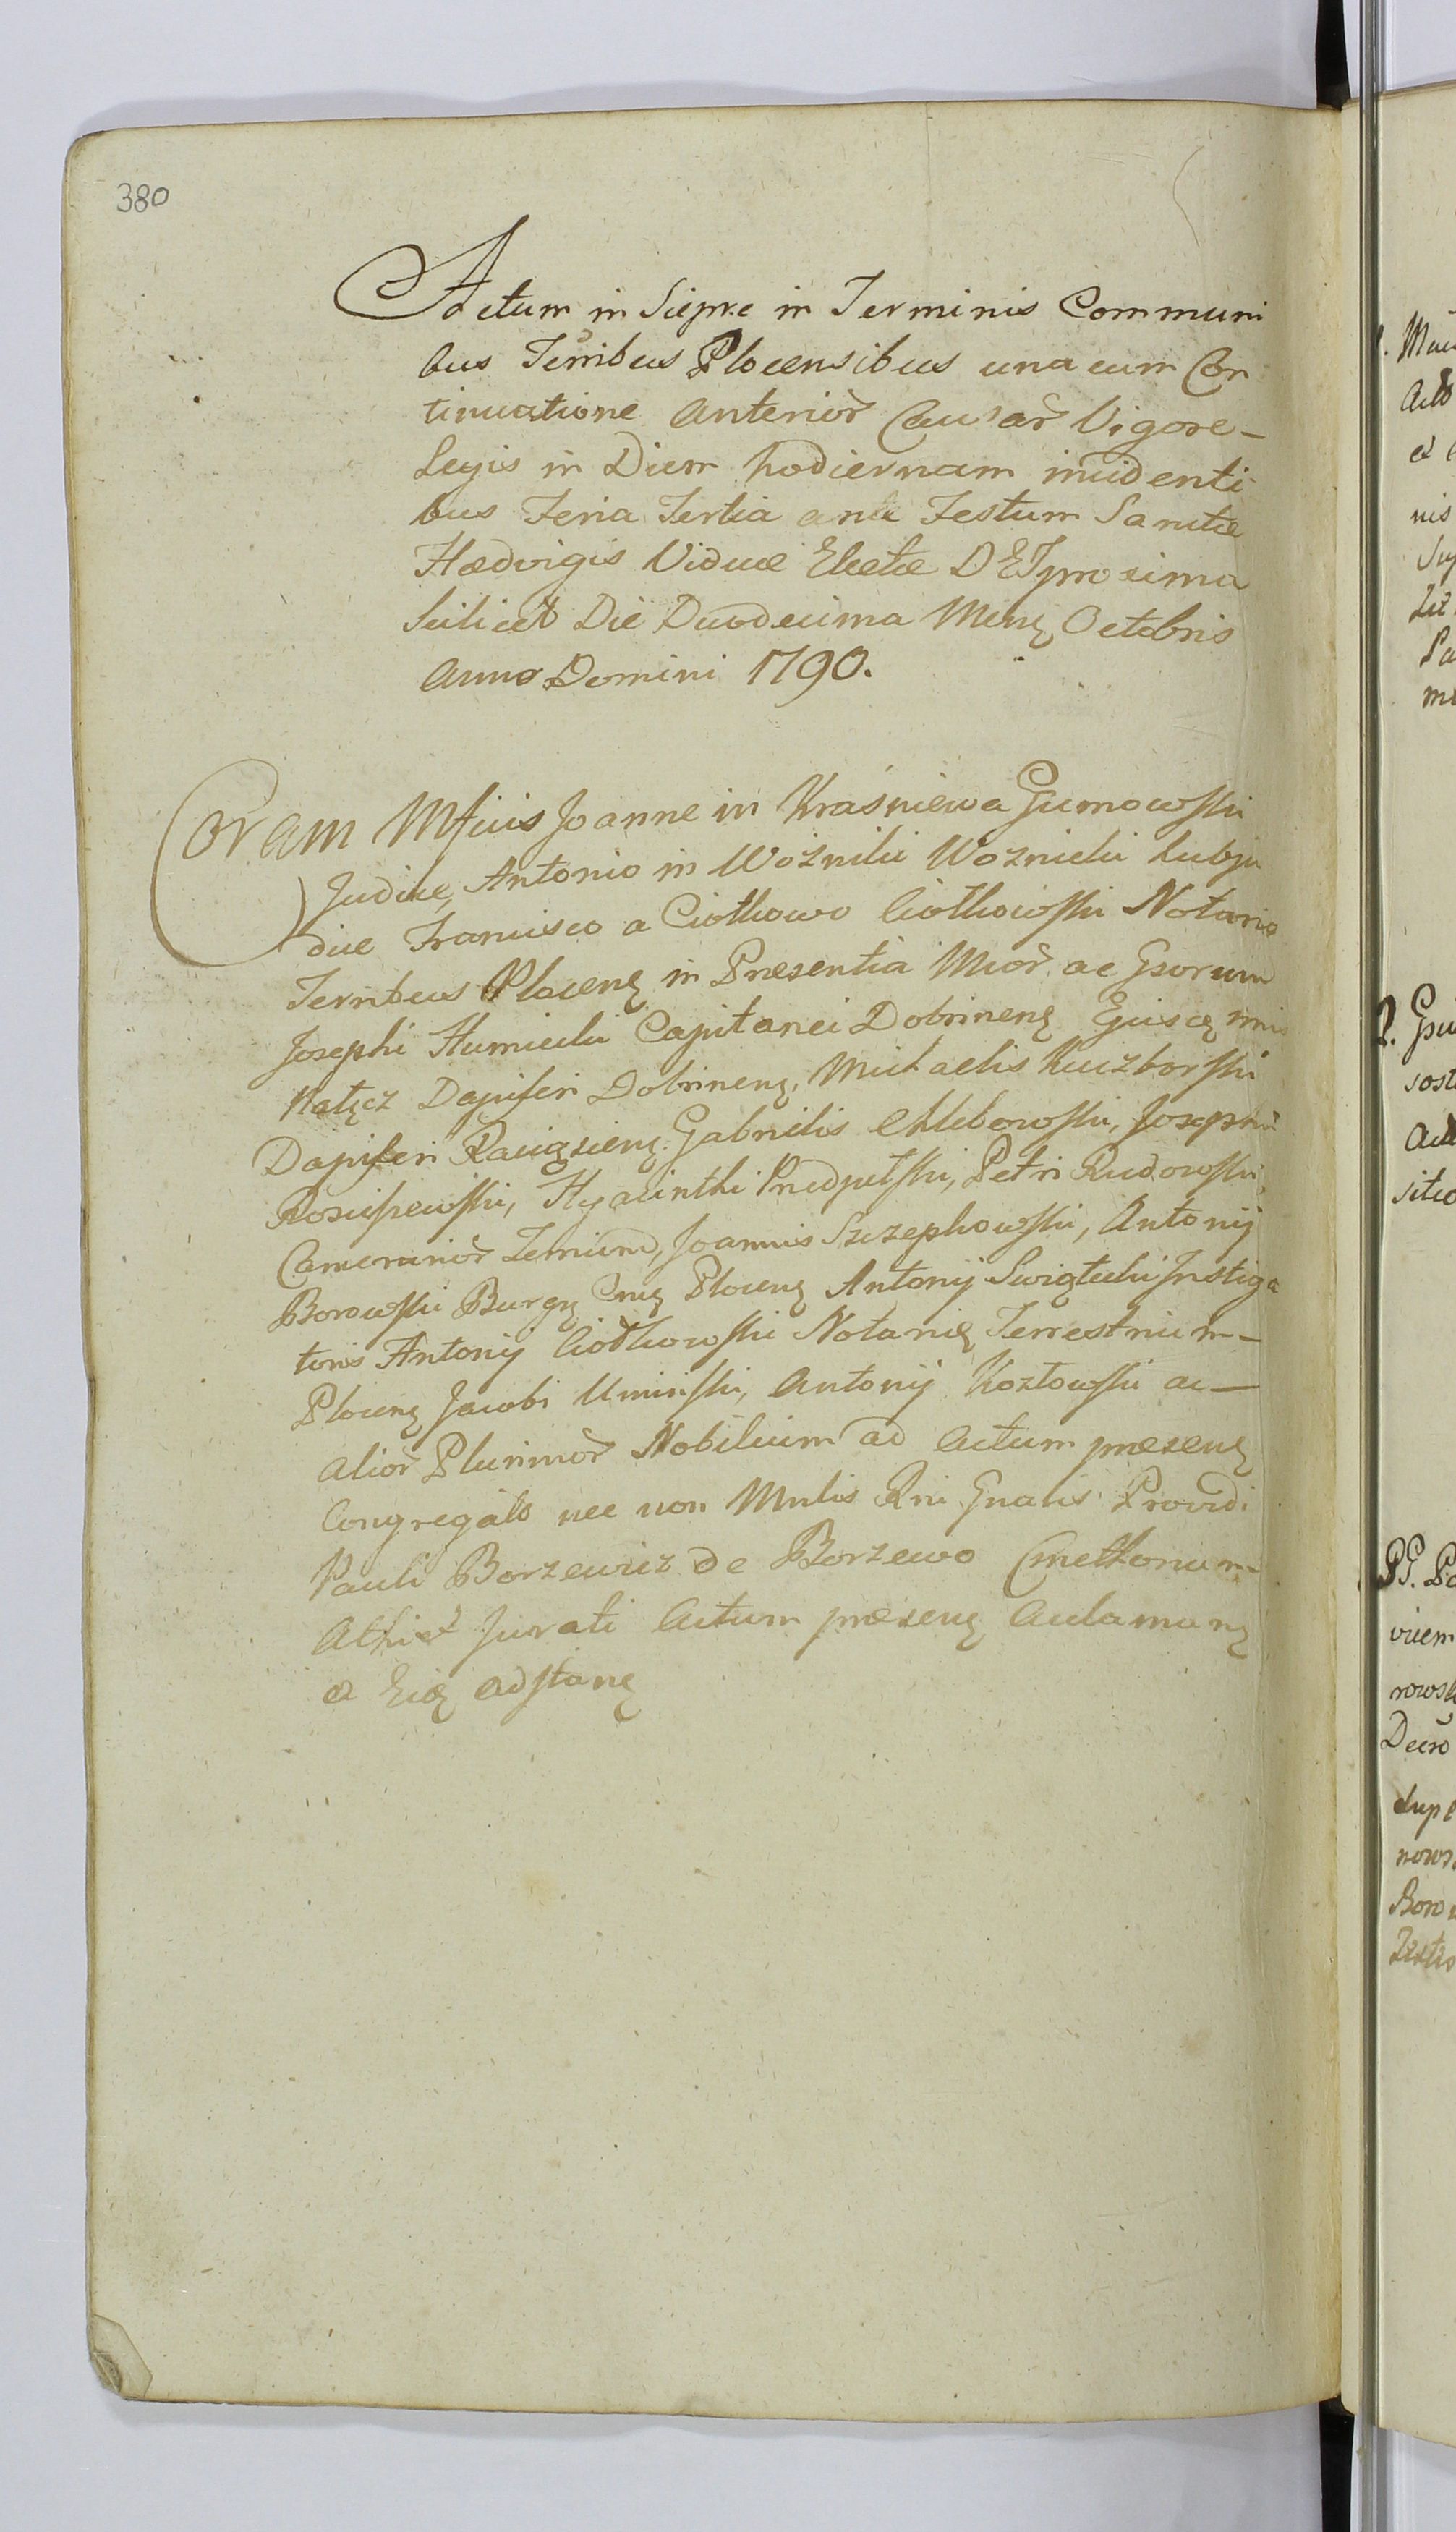 380
Actum in Sieprc in Terminis Communi
bus Terribus Plocensibus una cum Con
tinuatione Anterior Causar Vigore-
Legis in Diem hodiernam incidenti
bus Feria Tertia ante Festum Sanctæ
Hædvigis Viduæ Electæ DEI proxima
Scilicet Die Duodecima Mens Octobris
Anno Domini 1790.
Coram Mficis Joanne in Kraśniewa Gumowski
Judice, Antonio in Woźniki Woznicki Subju
dice Francisco a Ciołkowo Ciołkowski Notario
Terribus Plocens in Præsentia Mcor ac Gsorum
Josephi Humiecki Capitanei Dobrinens
Nałęcz Dapiferi Dobrinens, Michaelis Kuczborski
Dapiferi Raciąziens Gabrielis Chlebowski, Josephi
Rościszewski, Hyacinthi Przedpełski, Petri Rudowski,
Camerarior Terrium, Joannis Szczepkowski, Antonij
Borowski Burgg Plocens Antonij Swięteck Instiga
toris Antonij Ciołkowski Notarii Terrestrium-
Plocens Jacobi Uminski, Antonij Kozłowski ac-
alior Plurimor Nobilium ad Actum præsens
Congregato nec non Mnlis Rni Gnalis Providi
Pauli Borzewicz de Borzewo Cmethonum-
Actum præsens Aclamans
et adstans
1. Mai
Acto
et
nis
Pa
2. Gsu
sost
situ
PG. Pa
vicem
rowsk
Decro
dupl
nows
Boro